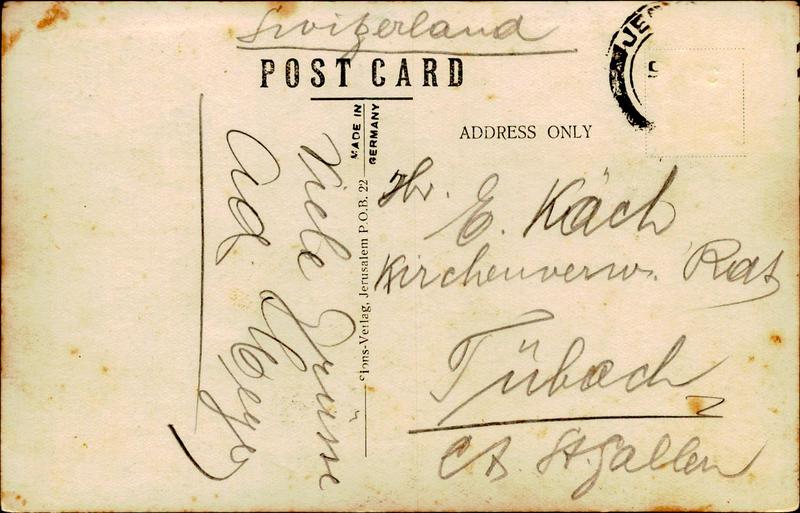 Switzerland
POST CARD
MADE IN
GERMANY
ADDRESS ONLY
Viele Grüsse
Ad.
Sions-Verlag, Jerusalem P.O.B. 22
Hr. E. Käch
Kirchenverw. Rat
Tübach
Ct. St. Gallen
JE